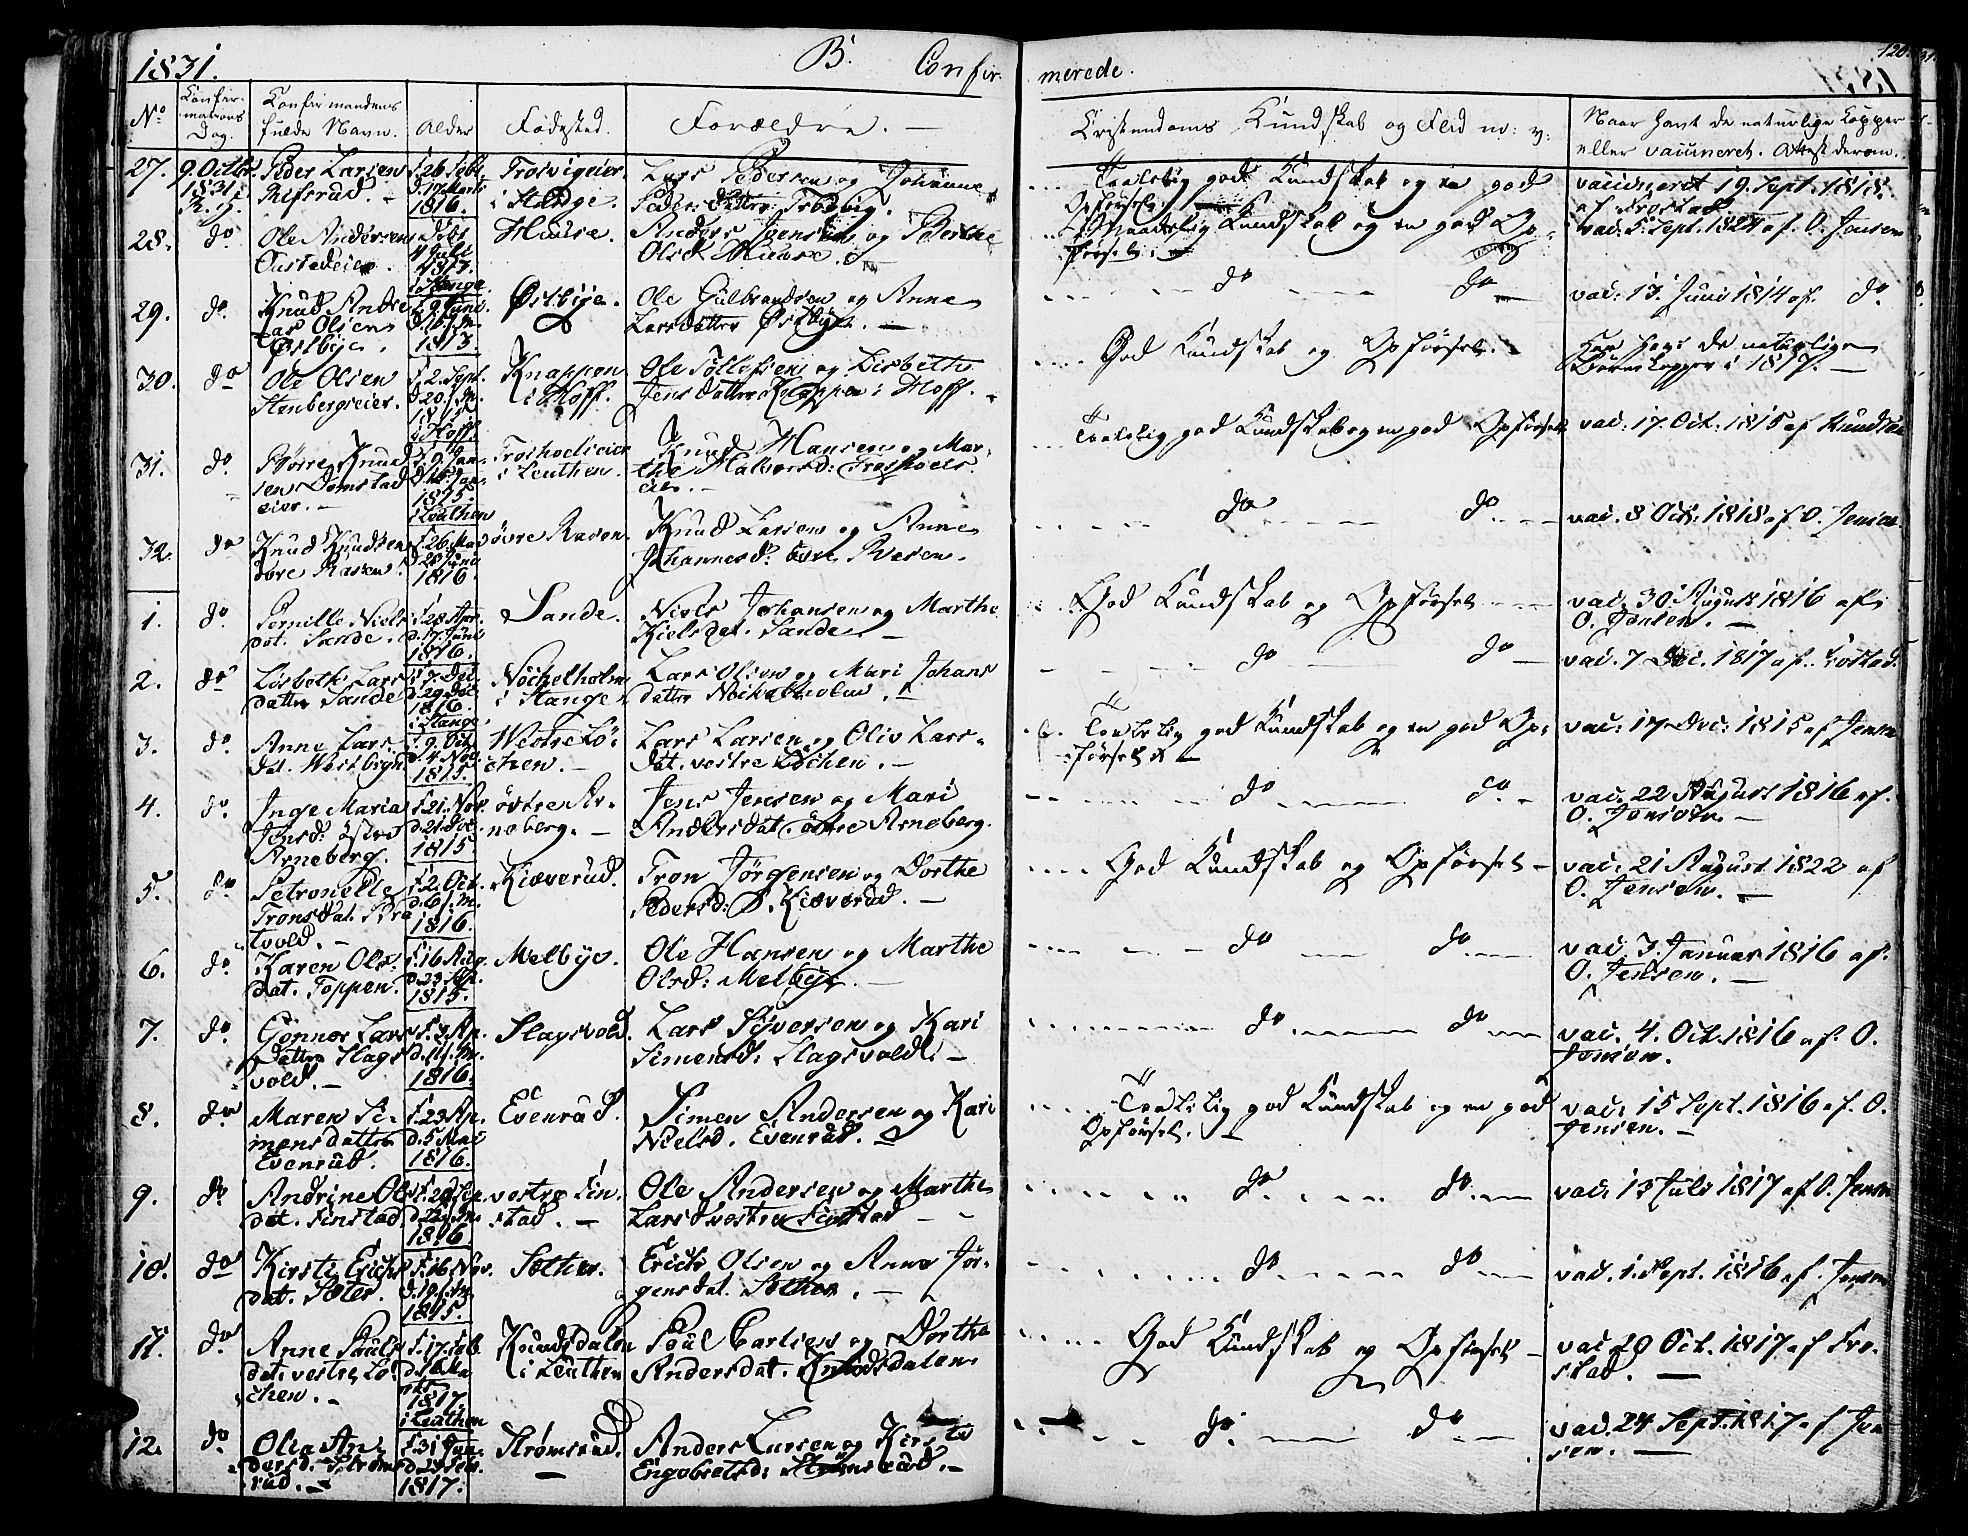 1831. B. Confir-
merede.
120.
No
Confir-
mations
Dag.
Confirmandens
fulde Navn.
Alder
Fødested.
Forældre.
Kristendoms Kundskab og Flid m: v:
Naar havt de naturlige Kopper
eller vaccineret. Attest derom.
27. 9. Octbr
1831.
Peder Larsen
Rifsrud.
1816.
i Stange.
Lars Pedersen og Johanne
Taalelig god Kundskab og en god
Opførsel
vaccineret 19. Sept. 1818
af Frostad
28. do
Ole Andersen
Huuse.
Anders Jensen og Berthe
Olsd. Huuse.
Maadelig Kundskab og en god Op-
førsel.
vac. 5. Sept. 1824 af O. Jensen
29. do.
Knud Andre
as Olsen
Østbye.
1813.
Østbye.
Ole Gulbrandsen og Anne
Larsdatter Østbye.
do do
vac: 13. Juni 1814 af do.
30. do
Ole Olsen
Stenbergseier.
f. 2. Sept.
i Hoff.
Knappen
i Hoff.
Ole Tollefsen og Lisbeth
Jensdatter Knappen i Hoff.
God Kundskab og Opførsel.
Har havt de naturlige
Børnekopper i 1817.
31. do.
Børre Knud
sen Domstad
eier.
1815.
i Leuthen
i Leuthen.
Knud Hansen og Mar-
the Halvorsd:
Taalelig god Kundskab og en god Opførsel
vac: 17 Oct. 1815 af Knudsen
32. do
Knud Knudsen
øvre Rasen.
1816.
øvre Rasen.
Knud Larsen og Anne
Johannesd. øvre Rasen.
do do.
vac. 8 Oct. 1818 af O. Jensen.
1. do.
Pernille Niels
dat. Sande.
f. 28 Apr.
1816.
Sande.
Niels Johansen og Marthe
Kielsdat. Sande
God Kundskab og Opførsel
vac. 30 August 1816 af
O. Jensen.
2. do
Lisbeth Lars
datter Sande
1816.
i Stange.
Nøckelholm
i Stange
Lars Olsen og Mari Johans
datter Nøckelholm.
do do
vac. 7 Dec. 1817 af Frostad.
3. do.
Anne Lars-
dat. Westbyen
f. 9. Oct.
d. 4 Nov.
1815.
Westre Lø-
chen.
Lars Larsen og Oliv Lars-
dat. vestre Løchen.
Taalelig god Kundskab og en god Op-
førsel
vac: 17 Dec: 1815 af Jensen
4. do.
Inge Maria
Jensd: østre
Arneberg.
f. 21. Nov.
1815.
østre Ar-
neberg.
Jens Jensen og Mari
Andersdat. østre Arneberg.
do do.
vac. 22 August 1816 af.
O. Jensen.
5. do
Petronelle
Tronsdat. Bra
tvold.
f. 2. Oct.
1816.
Kiæverud.
Tron Jørgensen og Dorthe
Pedersd: Kiæverud.
God Kundskab og Opførsel
vac. 21 August 1822 af
O. Jensen.
6. do.
Karen Ols-
dat. Toppen.
f. 16 Aug.
1815.
Melbye.
Ole Hansen og Marthe
Olsd: Melbye.
do do
vac. 3. Januar 1816 af.
O. Jensen.
7. do
Gonnor Lars
datter Slags
vold.
1816.
Slagsvold.
Lars Syversen og Kari
Simensd: Slagsvold.
do do
vac. 4. Oct. 1816 af O.
Jensen.
8. do.
Maren Si-
mensdatter
Evenrud.
f. 23 Ap.
d. 5 Mai
1816.
Evenrud.
Simen Andersen og Kari
Nielsd. Evenrud.
Taalelig god Kundskab og en god
Opførsel.
vac: 15 Sept. 1816 af O.
Jensen.
9. do
Andrine Ols
dat. Finstad
1816.
vestre Fin-
stad.
Ole Andersen og Marthe
Larsd vestre Finstad
do. do.
vac. 13 Juli 1817 af O. Jensen
10. do
Kirsti Erichs
dat. Sæter.
f. 16 Nov.
1815.
Sæther.
Erich Olsen og Anne Jør-
gensdat. Sæther.
do do
vac. 1. Sept. 1816 af. Jensen
11. do.
Anne Pouls
dat. vestre Lø-
chen.
f. 17. Feb
1817.
i Leuthen
Knudsdalen
i Leuthen
Poul Carlsen og Dorthe
Andersdat. Knudsdalen
God Kundskab og Opførsel
vac 29 Oct. 1817 af Fro-
stad.
12. do.
Olia An-
dersd. Strøms
rud.
f. 31 Jan.
1817.
Strømsrud.
Anders Larsen og Kirsti
Engebretsd: Strømsrud.
do. do
vac. 24 Sept. 1817 af Jen
sen.